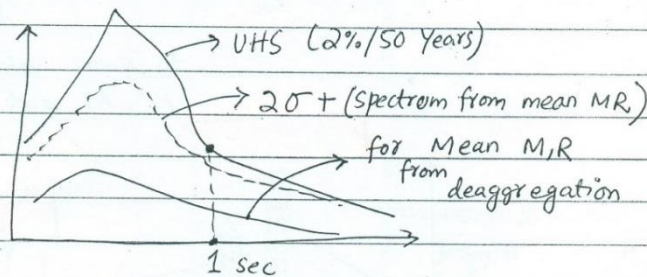 UHS (2%/50 Years)
2σ + (spectrom from mean MR)
for Mean M,R
from
deaggregation
1 sec